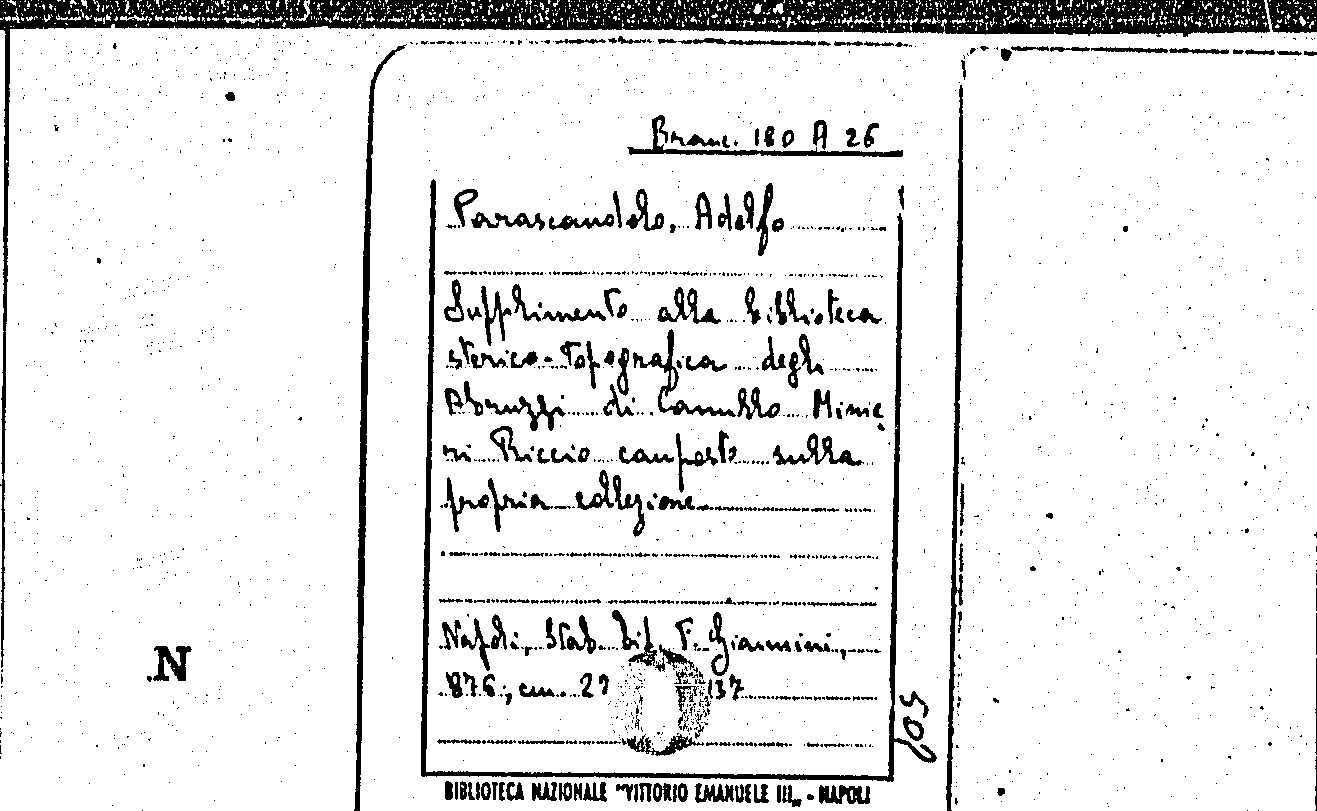 Branc. 180 A 26
Parascandolo, Adolfo
Supplimento alla biblioteca
storico-topografica degli
Abruzzi di Camillo Minie
ri Riccio composto sulla
propria collezione
Napoli, Stab. tip. F. Giannini,
876; cm. 27 137
N
BIBLIOTECA NAZIONALE "VITTORIO EMANUELE III„ - NAPOLI